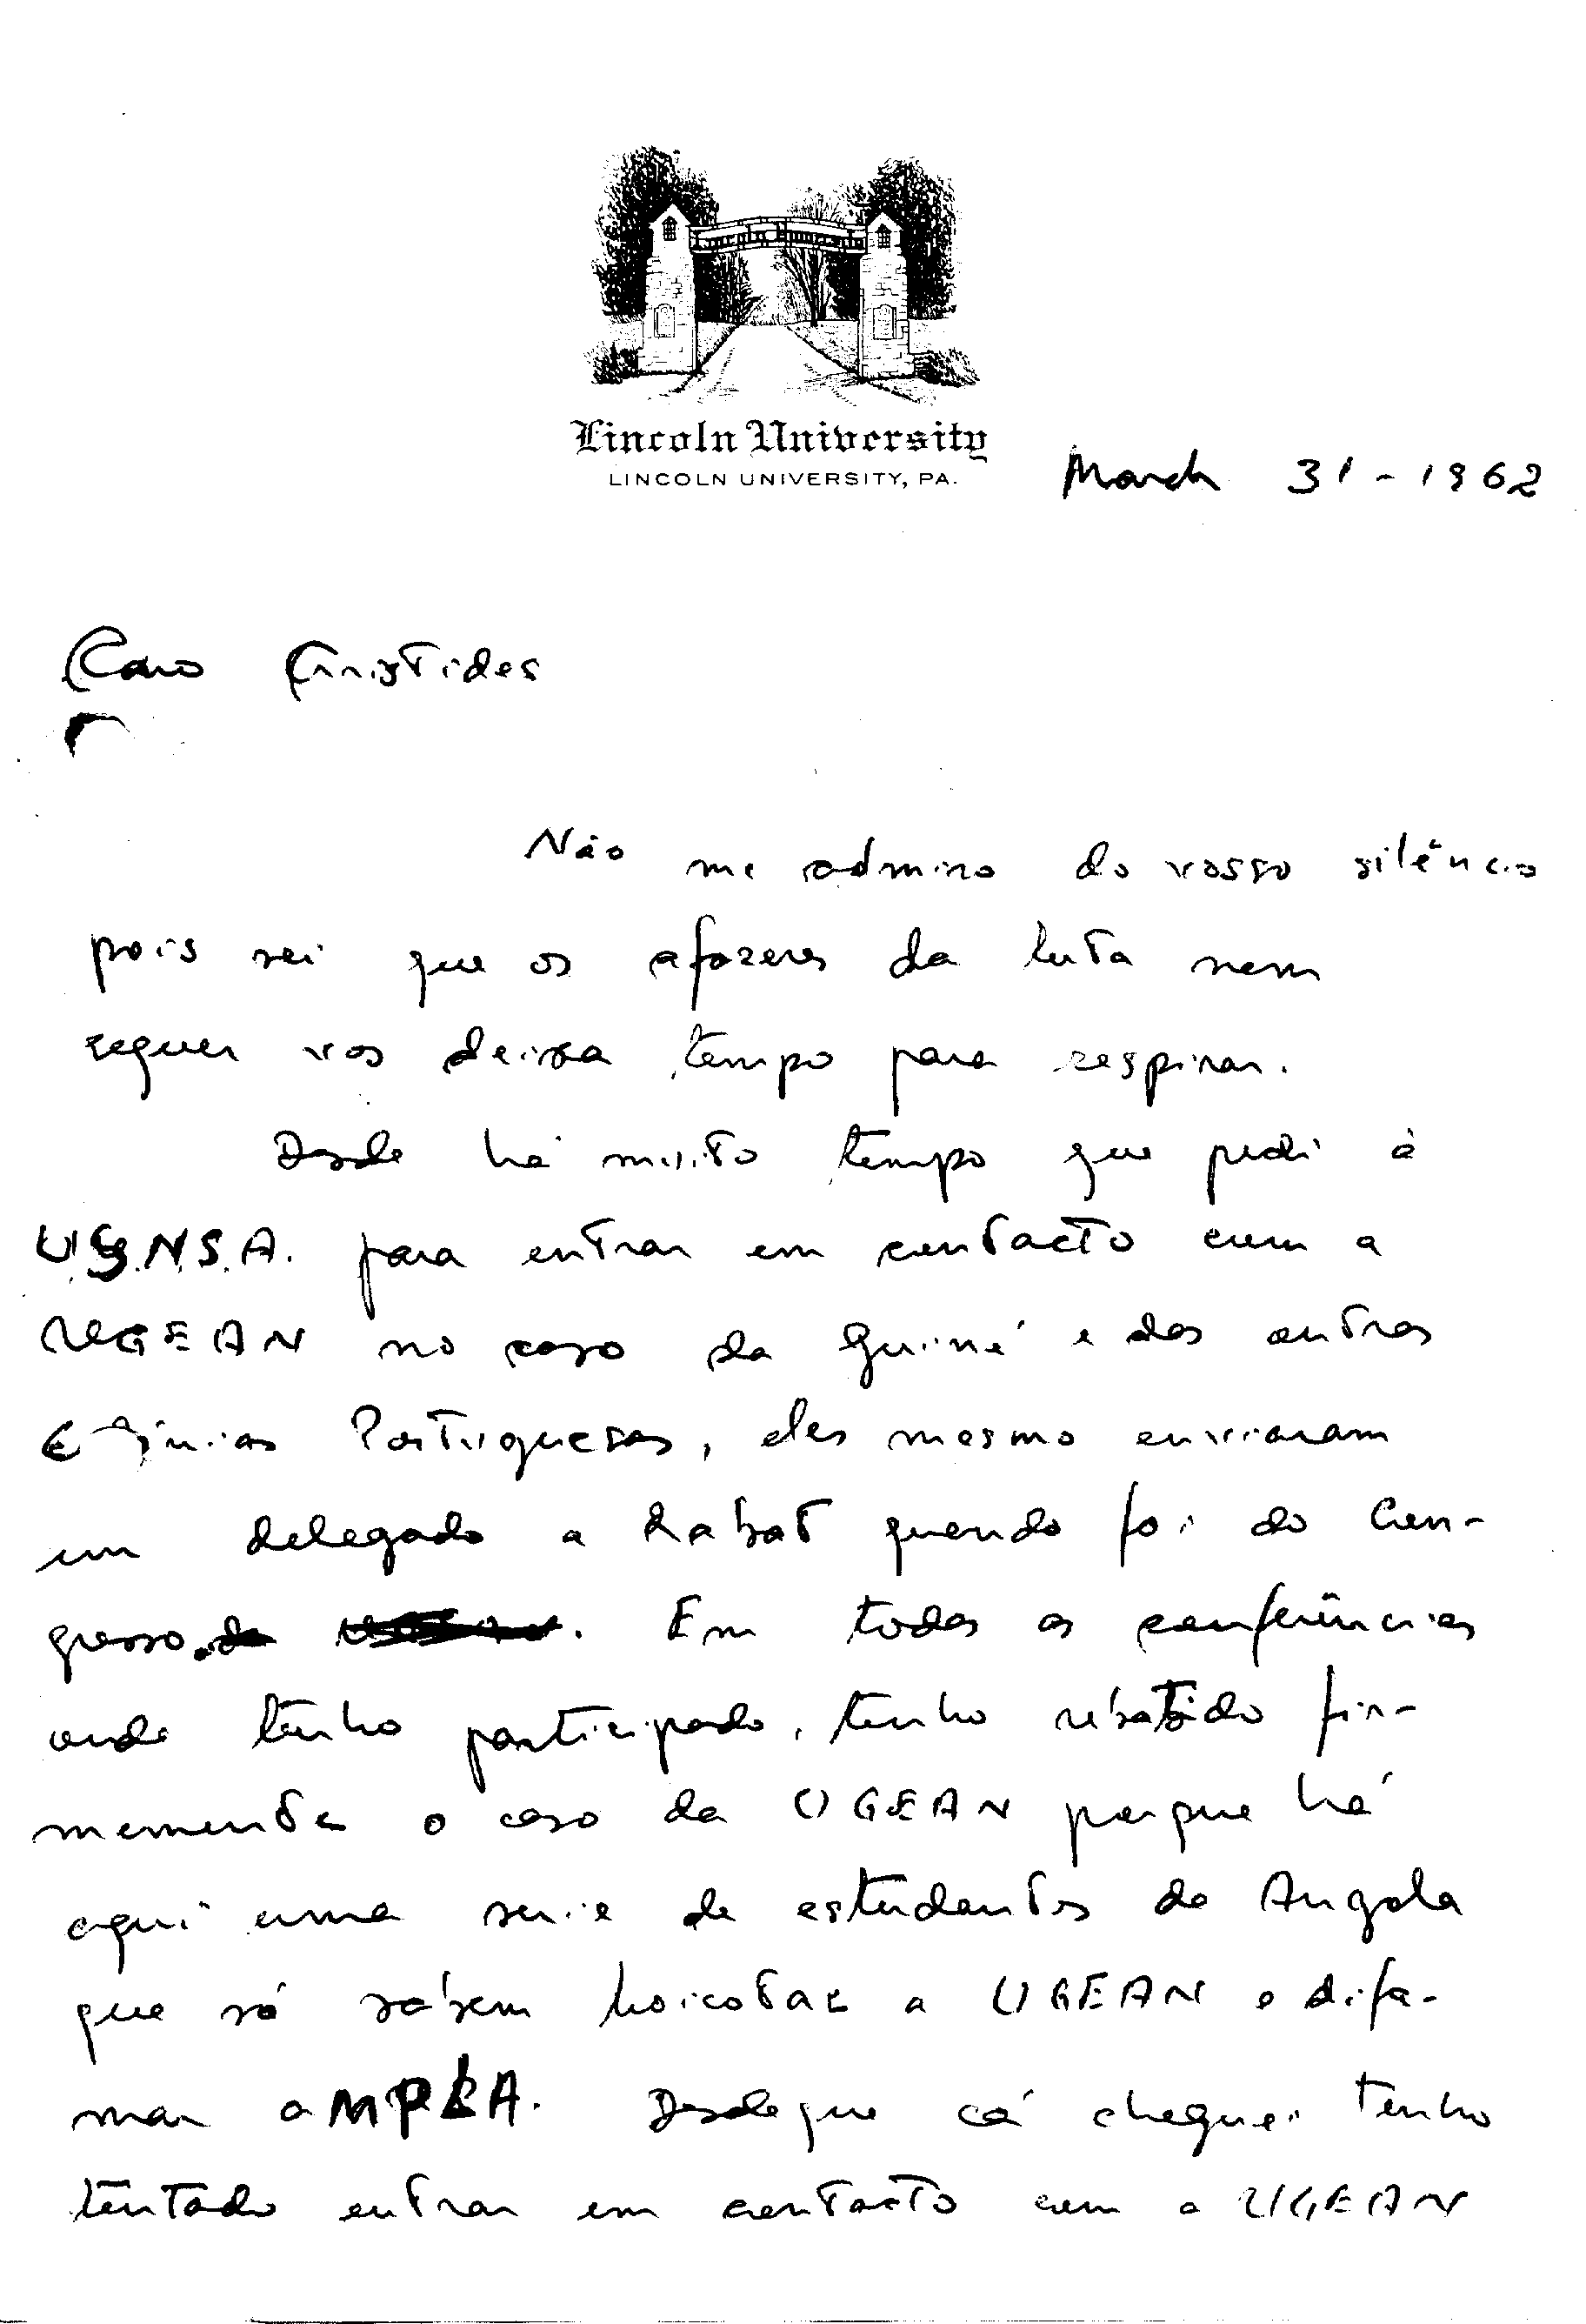 Lincoln University
Lincoln University
LINCOLN UNIVERSITY, PA.
March 31 - 1962
Caro Aristides
Não me admiro do vosso silêncio
pois sei que os afazeres da luta nem
sequer vos deixa tempo para respirar.
Desde há muito tempo que pedi à
U.S.N.S.A. para entrar em contacto com a
UGEAN no caso da Guiné e das outras
Portuguesas, eles mesmo enviaram
um delegado a Rabat quando foi do Con-
gresso. Em todas as conferências
onde tenho participado, tenho rebatido fir-
memente o caso da UGEAN porque há
aqui uma serie de estudantes de Angola
que só sabem boicotar a UGEAN e difa-
mar o MPLA. Desde que cá cheguei tenho
tentado entrar em contacto com a UGEAN